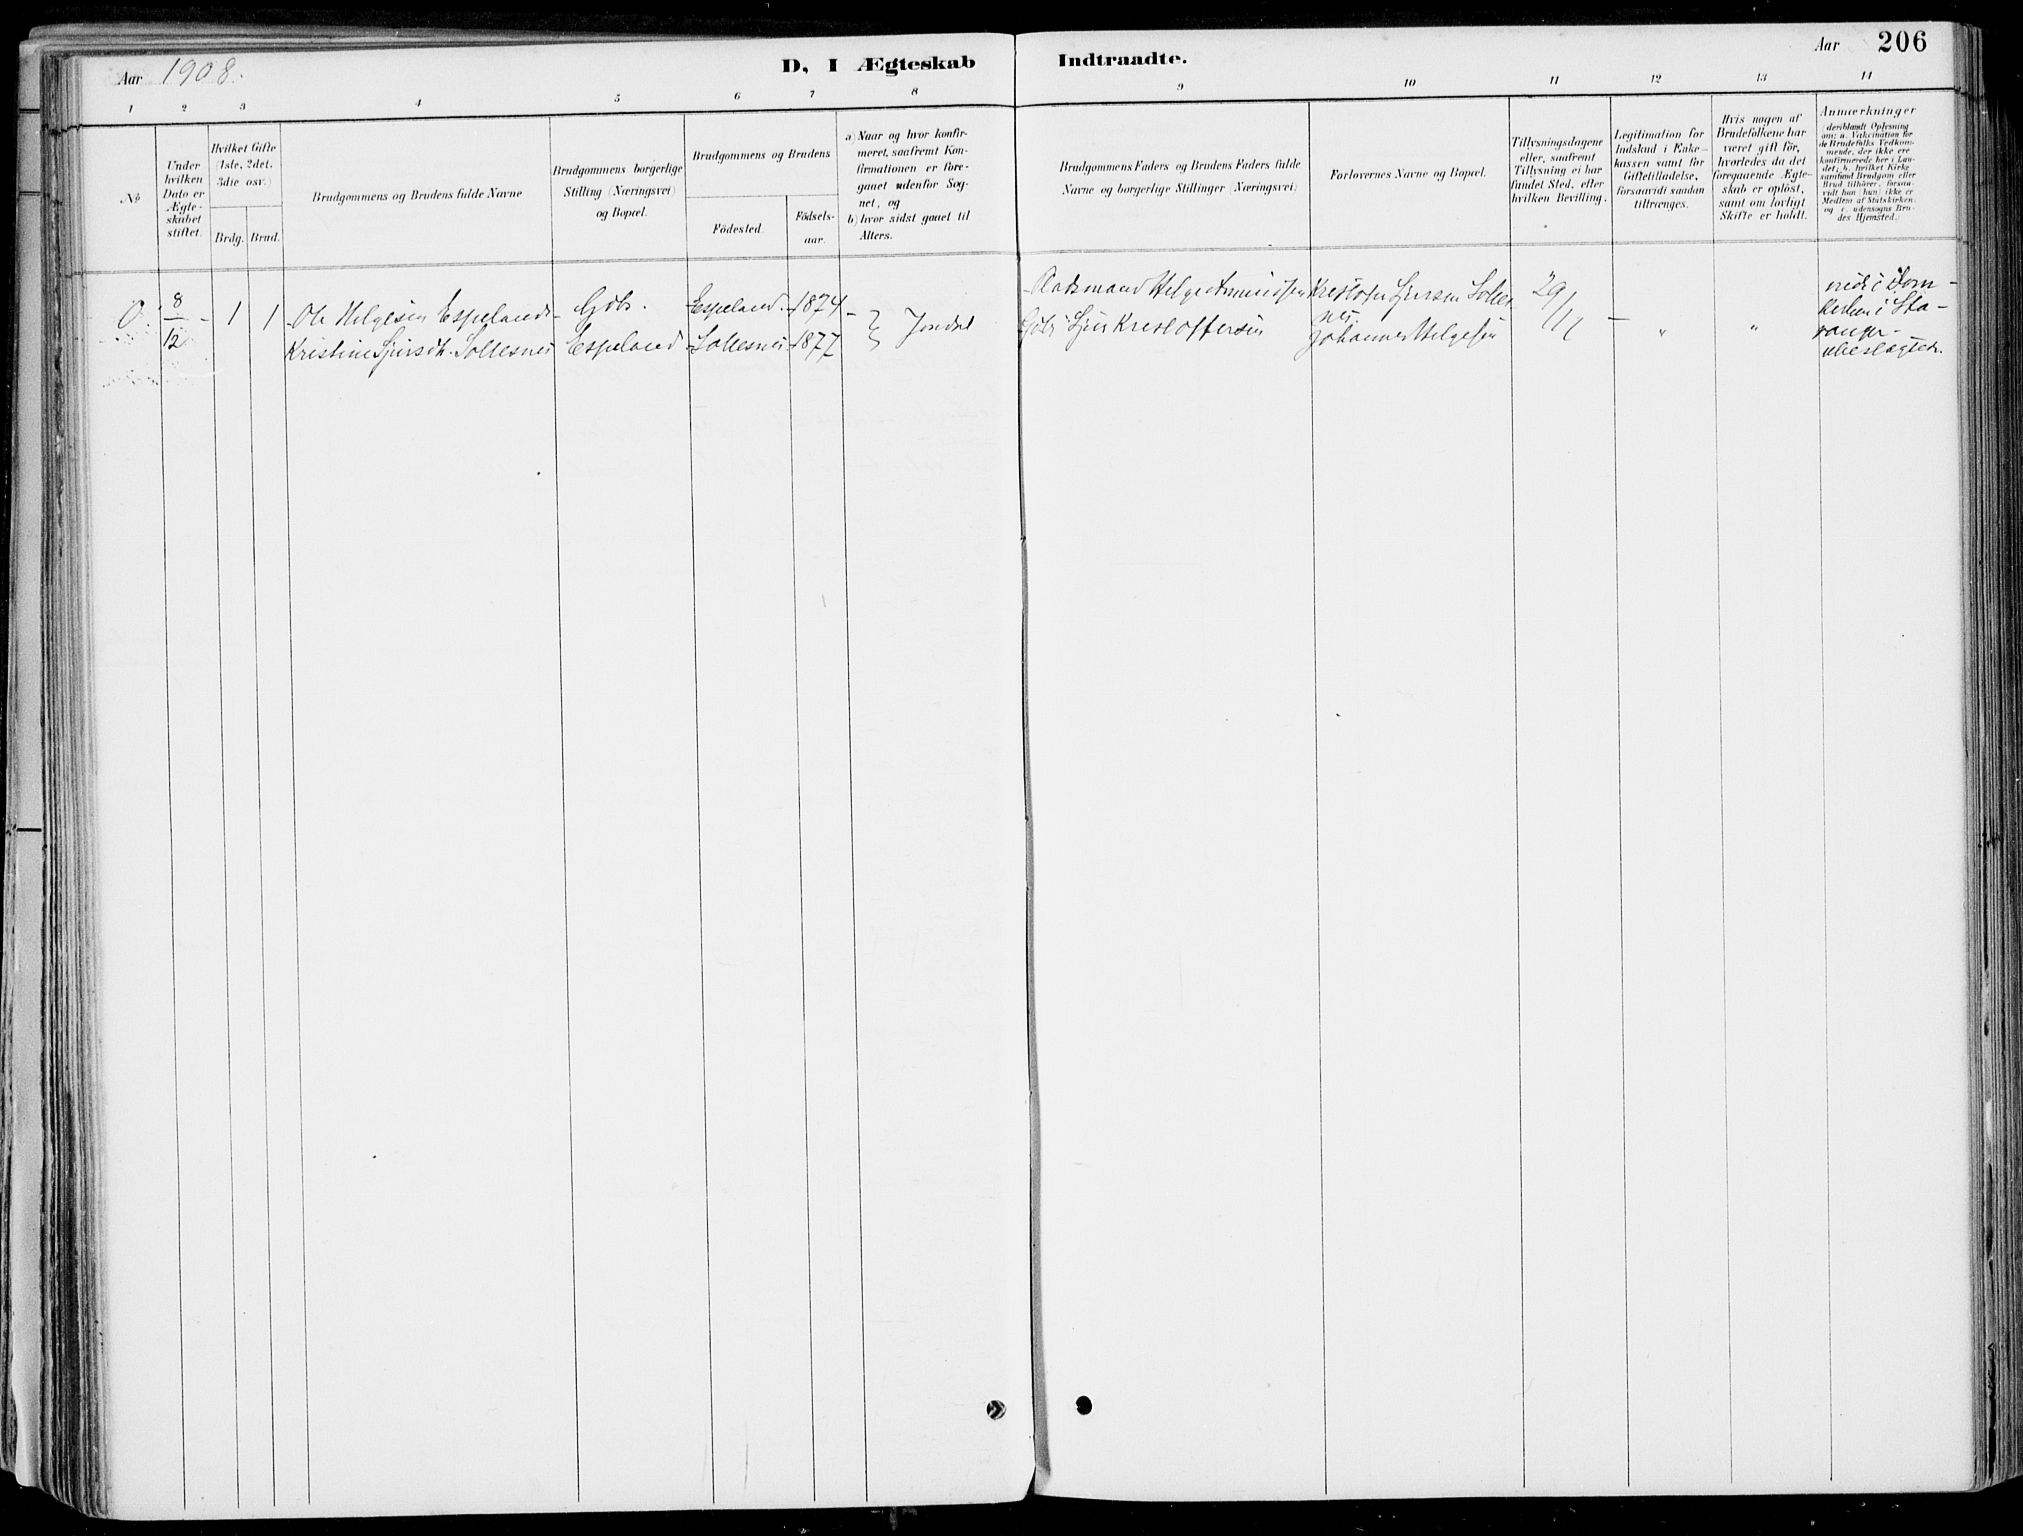 Aar 1908.
D, I Ægteskab
Indtraadte.
Aar 206
1 2 3 4 5 6 7 8
9 10 11 12 13 14
№
Under
hvilken
Dato er
Ægte-
skabet
stiftet.
Hvilket Gifte
(1ste, 2det,
3die osv.)
Brdg. Brud.
Brudgommens og Brudens fulde Navne
Brudgommens borgerlige
Stilling (Næringsvei)
og Bopæl.
Brudgommens og Brudens
Födested.
Födsels-
aar.
a) Naar og hvor konfir-
meret, saafremt Kon-
firmationen er fore-
gaaet udenfor Sog-
net, og
b) hvor sidst gaaet til
Alters.
Brudgommens Faders og Brudens Faders fulde
Navne og borgerlige Stillinger (Næringsvei)
Forlovernes Navne og Bopæl.
Tillysningsdagene
eller, saafremt
Tillysning ei har
fundet Sted, efter
hvilken Bevilling.
Legitimation for
Indskud i Enke-
kassen samt for
Giftetilladelse,
forsaavidt saadan
tiltrænges.
Hvis nogen af
Brudefolkene har
været gift för,
hvorledes da det
foregaaende Ægte-
skab er oplöst,
samt om lovligt
Skifte er holdt.
Anmærkninger
(deriblandt Oplysning
om: a. Vakcination for
de Brudefolks Vedkom-
mende, der ikke ere
konfirmerede her i Lan-
det; b. hvilket Kirke-
samfund Brudgom eller
Brud tilhörer, forsaa-
vidt han (hun) ikke er
Medlem af Statskirken,
og c. udensogns Bru-
des Hjemsted.)
0 8/12 - 1 1 Ole Helgesen Espeland - Gdb. Espeland. 1874 - } Jondal
Kristine Sjursdt. Soltesnes Espeland Soltesnes 1877
Helge Amundsen Kristofer Sjursen Soltes- 29/11 - " "
Gdbr. Sjur Kristoffersen nes.
Johannes Helgesen
viede i Dom-
kirken i Sta-
vanger -
ubeslægtede.